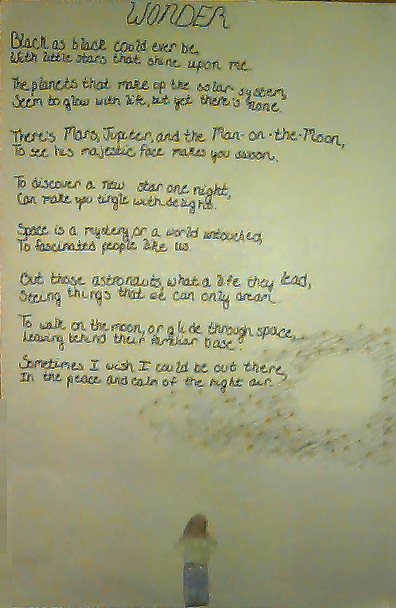 WONDER
Black as black could ever be,
With little stars that shine upon me.
The planets that make up the solar system,
Seem to glow with life, but yet there's none.
There's Mars, Jupiter, and the Man-on-the-Moon,
To see his majestic face makes you swoon.
To discover a new star one night,
Can make you tingle with delight.
Space is a mystery or a world untouched,
To fascinated people like us.
Out those astronauts, what a life they lead,
Seeing things that we can only dream.
To walk on the moon, or glide through space,
Leaving behind their familiar base.
Sometimes I wish I could be out there,
In the peace and calm of the night air.